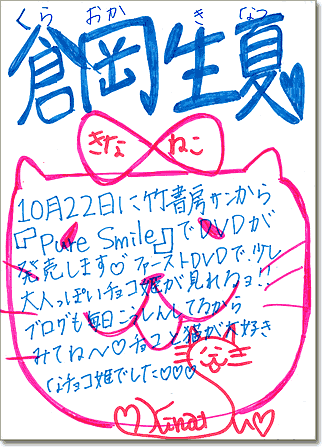 くら おか き なつ
倉岡生夏
きな ねこ
10月22日に竹書房サンから
『Pure Smile』でDVDが
発売します♡ファーストDVDで、少し
大人っぽいチョコ姫が見れるョ!!
ブログも毎日こうしんしてるから
みてね〜♡チョコと猫が大好き
なチョコ姫でした♡♡♡
Kinatsu